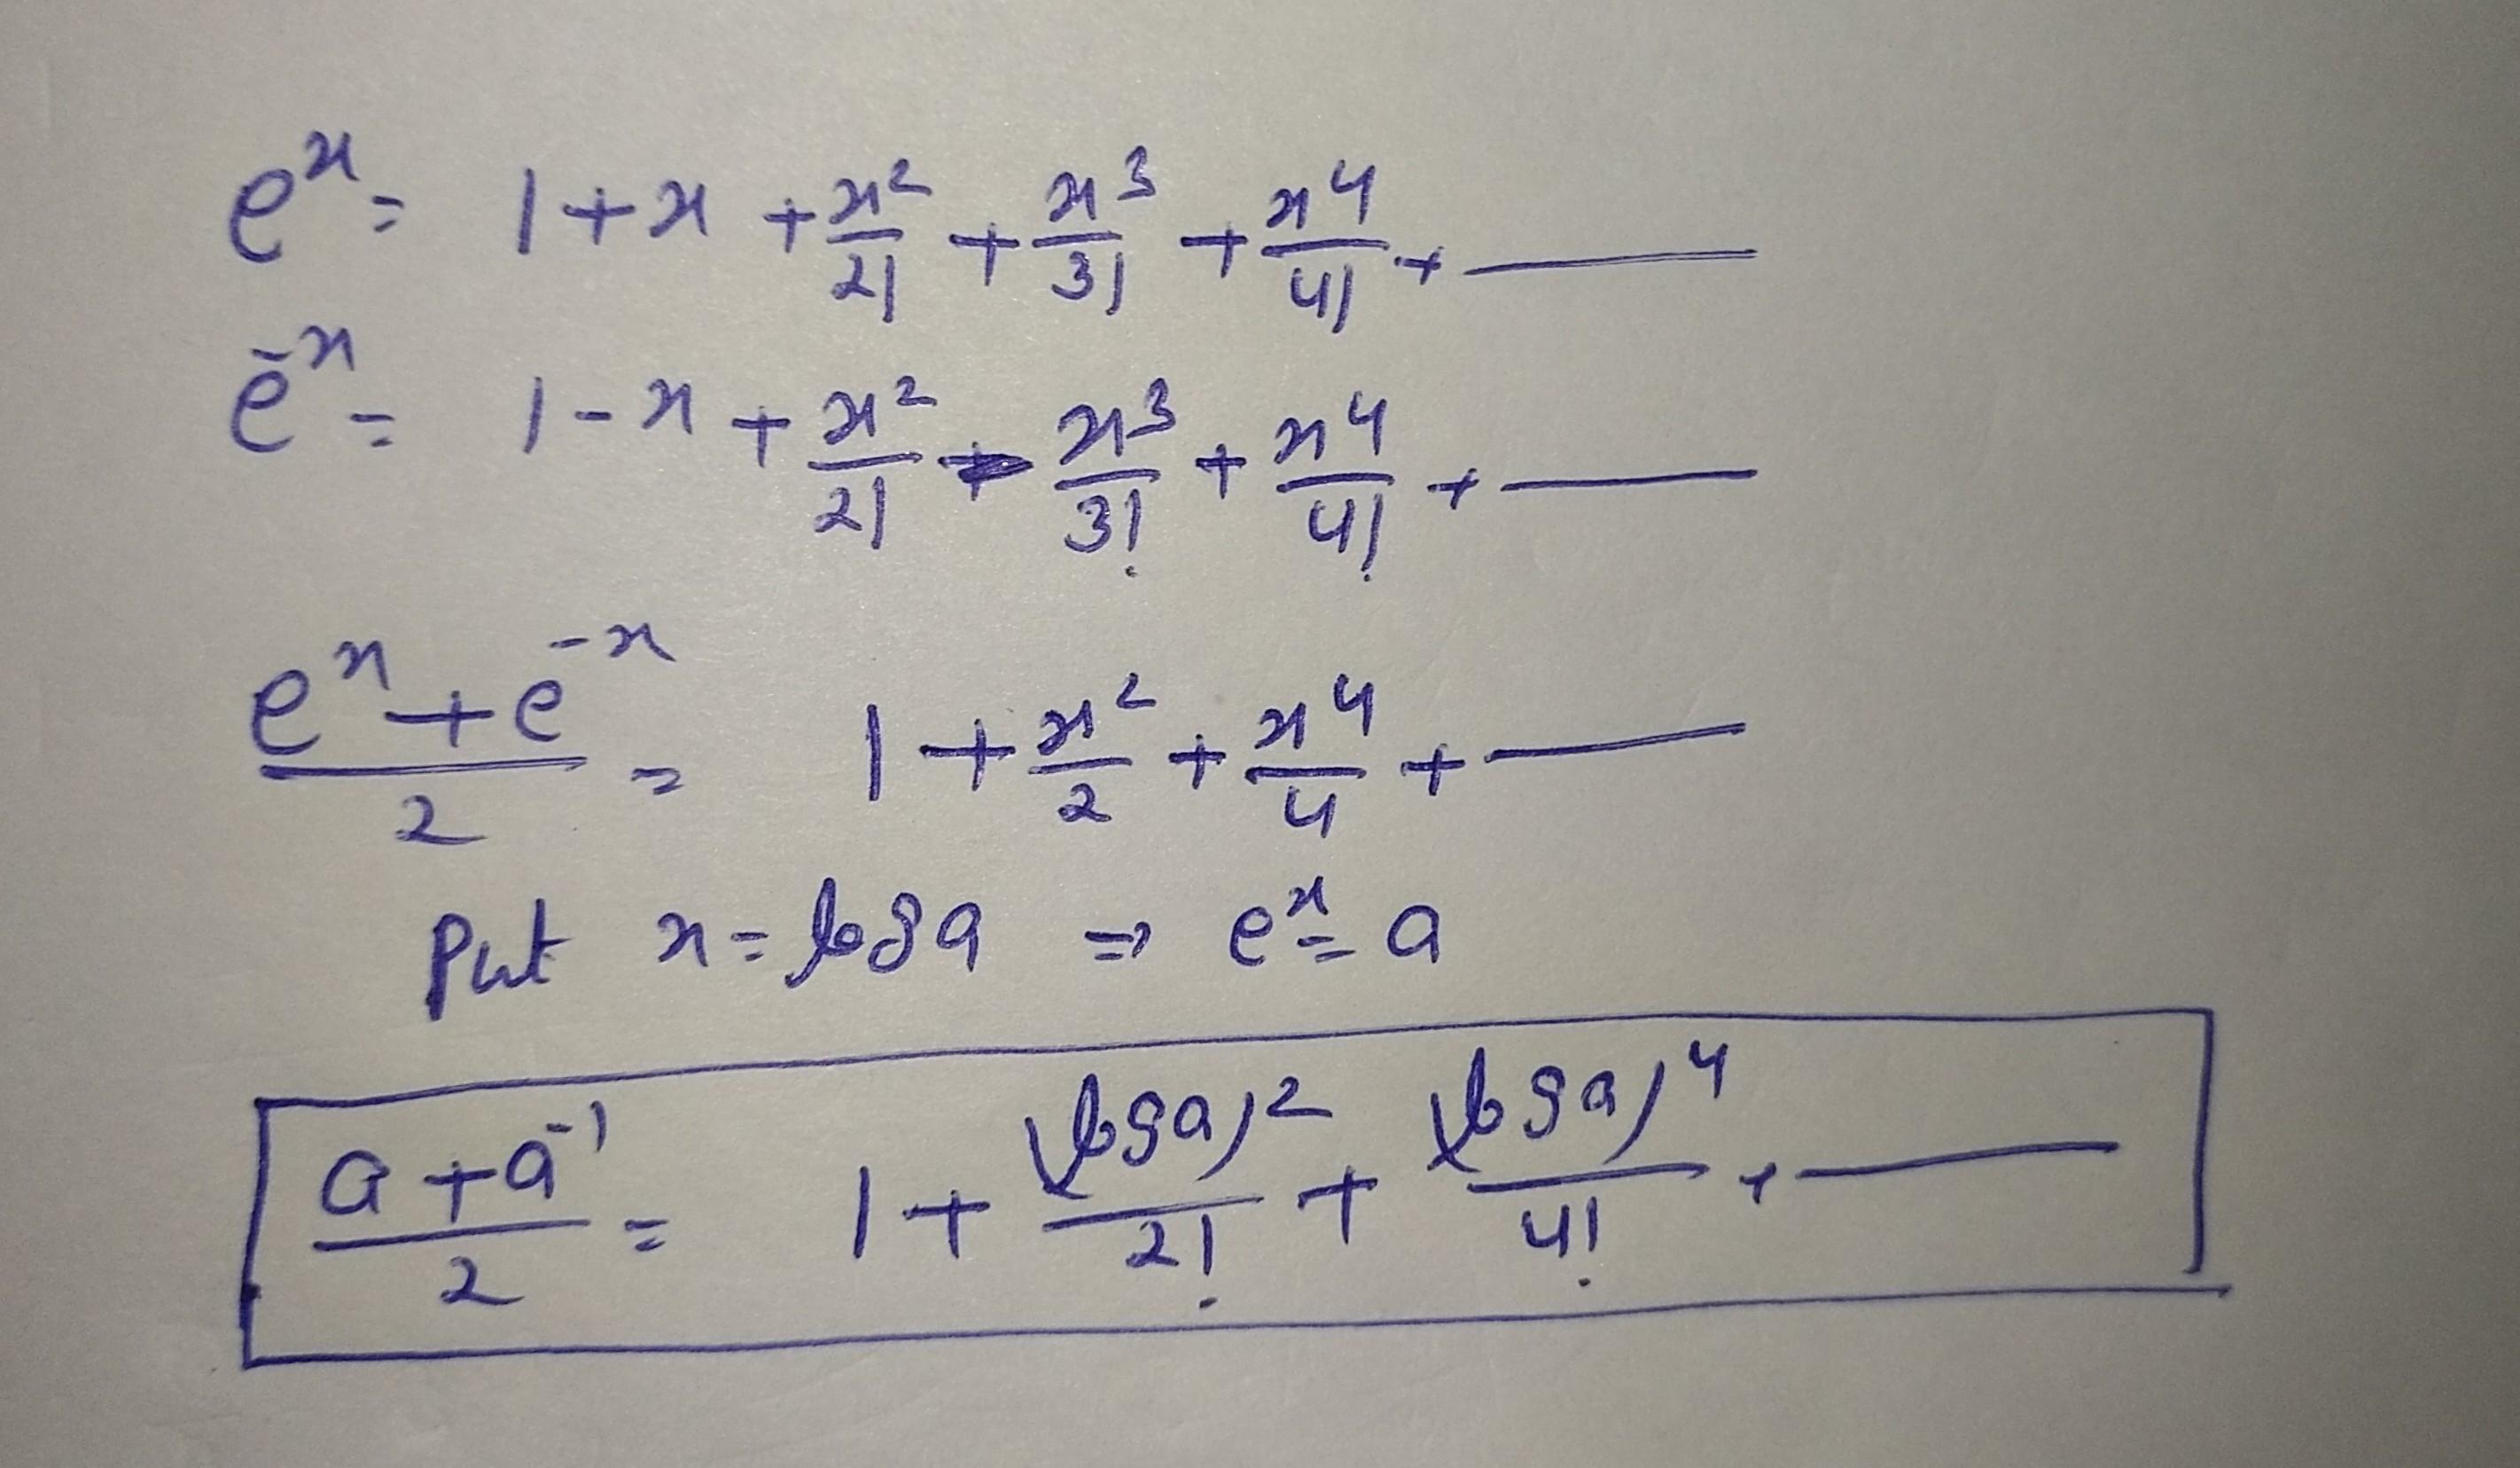 e^x = 1 + x + x^2/2! + x^3/3! + x^4/4! + ———
e^-x = 1 - x + x^2/2! - x^3/3! + x^4/4! + ———
(e^x + e^-x)/2 = 1 + x^2/2 + x^4/4 + ———
Put x = log a ⇒ e^x = a
(a + a^-1)/2 = 1 + (log a)^2/2! + (log a)^4/4! + ———